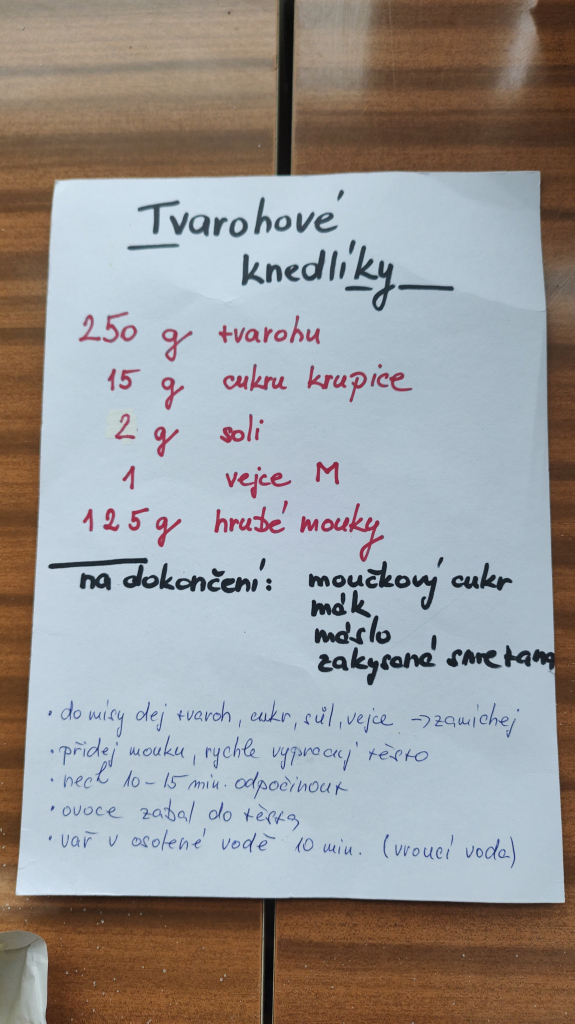 Tvarohové
knedlíky
250 g tvarohu
15 g cukru krupice
2 g soli
1 vejce M
125 g hrubé mouky
na dokončení: moučkový cukr
mák
máslo
zakysaná smetana
• do mísy dej tvaroh, cukr, sůl, vejce → zamíchej
• přidej mouku, rychle vypracuj těsto
• nech 10-15 min. odpočinout
• ovoce zabal do těsta
• vař v osolené vodě 10 min. (vroucí voda)